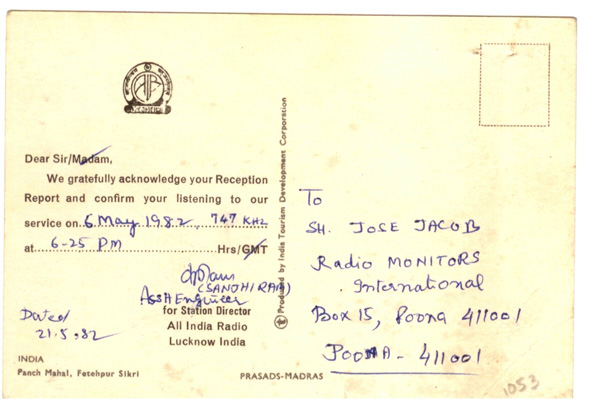 Dear Sir/Madam,
We gratefully acknowledge your Reception
Report and confirm your listening to our
service on 6 May 1982, 747 KHz
at 6-25 PM Hrs/GMT
(SANDHI RAM)
Asst Engineer
for Station Director
All India Radio
Lucknow India
Dated
21.5.82
INDIA
Panch Mahal, Fetehpur Sikri
PRASADS-MADRAS
Produced by India Tourism Development Corporation
To
SH. JOSE JACOB
Radio MONITORS
International
Box 15, Poona 411001
POONA - 411001
1053